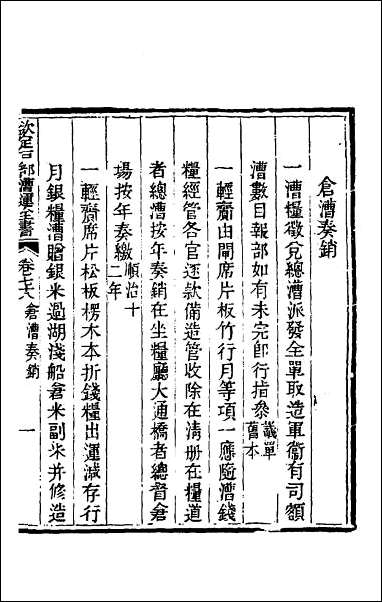 倉漕奏銷
一漕糧徵兌總漕派發全單取造軍衞有司額
漕數目報部如有未完卽行指叅議單舊本
一輕齎由閘席片板竹行月等項一應隨漕錢
糧經管各官逐款備造管收除在淸册在糧道
者總漕按年奏銷在坐糧廳大通橋者總督倉
塲按年奏繳順治十二年
一輕齎席片松板楞木本折錢糧出運減存行
月銀糧漕贈銀米過湖淺船倉米副米并修造
欽定戶部漕運全書
卷七六 倉漕奏銷
一